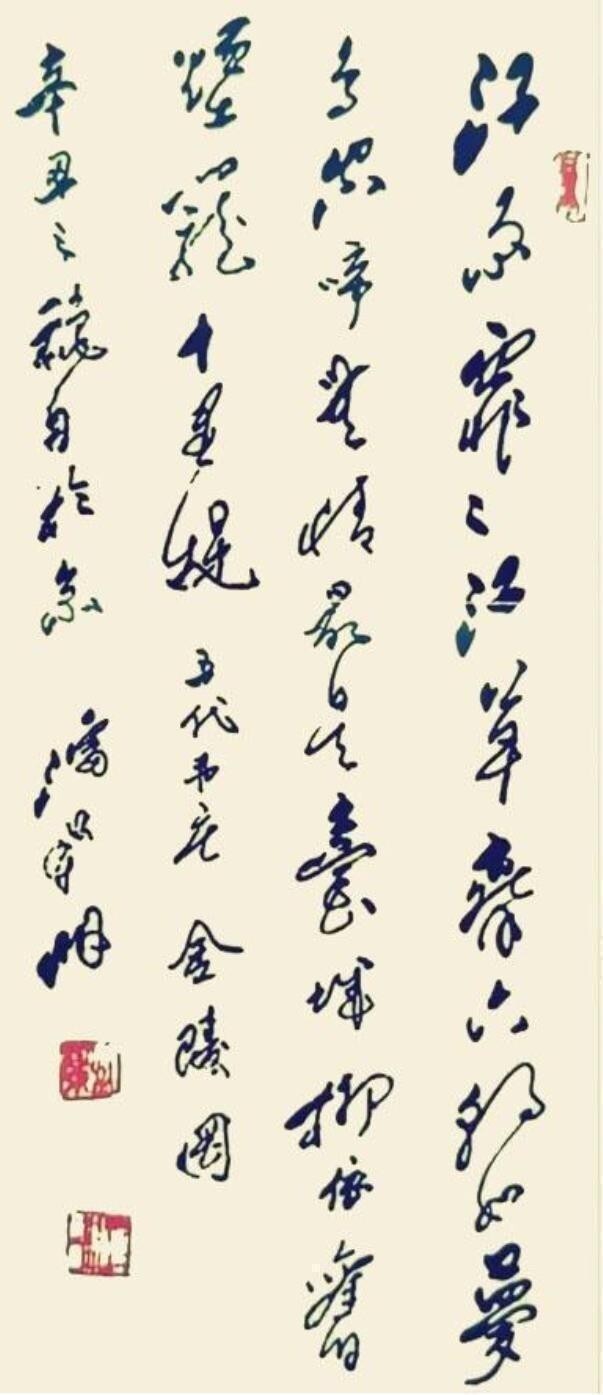 江雨霏々江草齊六朝如夢
鳥空啼無情最是臺城柳依舊
煙籠十里堤 五代韋莊 金陵圖
辛丑之穐月於京 潘